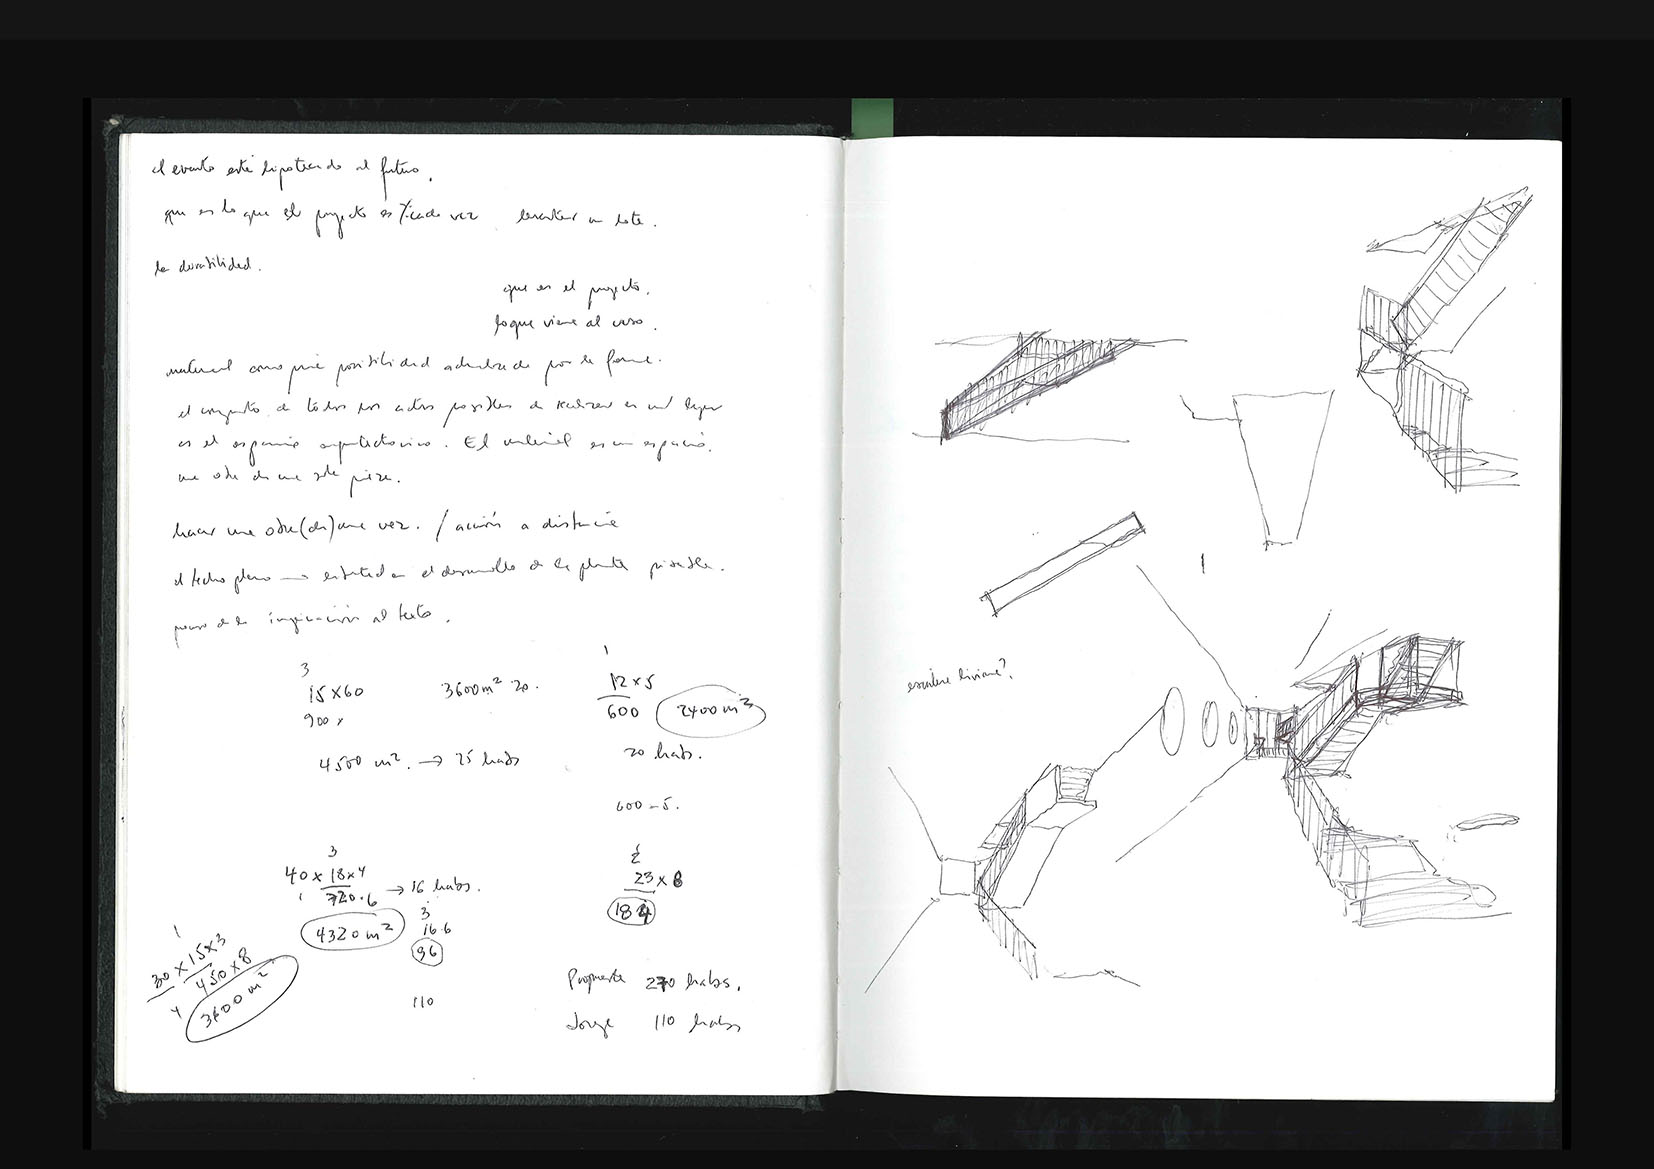 el evento esté hipotecando al futuro.
que es lo que el proyecto es / cada vez levantar un lote.
la durabilidad.
que es el proyecto.
lo que viene al caso.
material como pura posibilidad adensada por la forma.
el conjunto de todos los actos posibles de realizar en un lugar
es el espacio arquitectónico. El material es un espacio.
una obra de una sola pieza.
hacer una obra (de) una vez. / acción a distancia
el techo plano → libertad en el desarrollo de la planta posible.
paso de la imaginación al texto.
3
15 x 60
900 x
3600 m² 20.
4500 m². → 25 habs
1
12 x 5
600
2400 m²
20 habs.
600 - 5.
3
40 x 18 x 4
720 . 6 → 16 habs.
4320 m²
3
16.6
96
110
2
23 x 8
184
1
30 x 15 x 3
4
450 x 8
3600 m²
270 habs.
Jorge 110 habs
liviana?